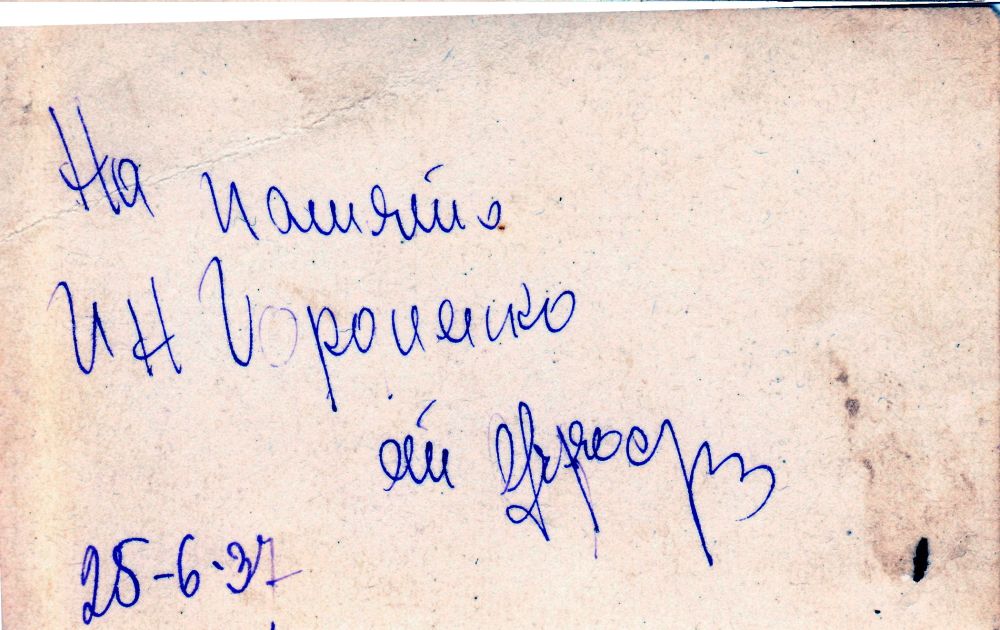 На память
ИН Вороненко
от
25-6-37